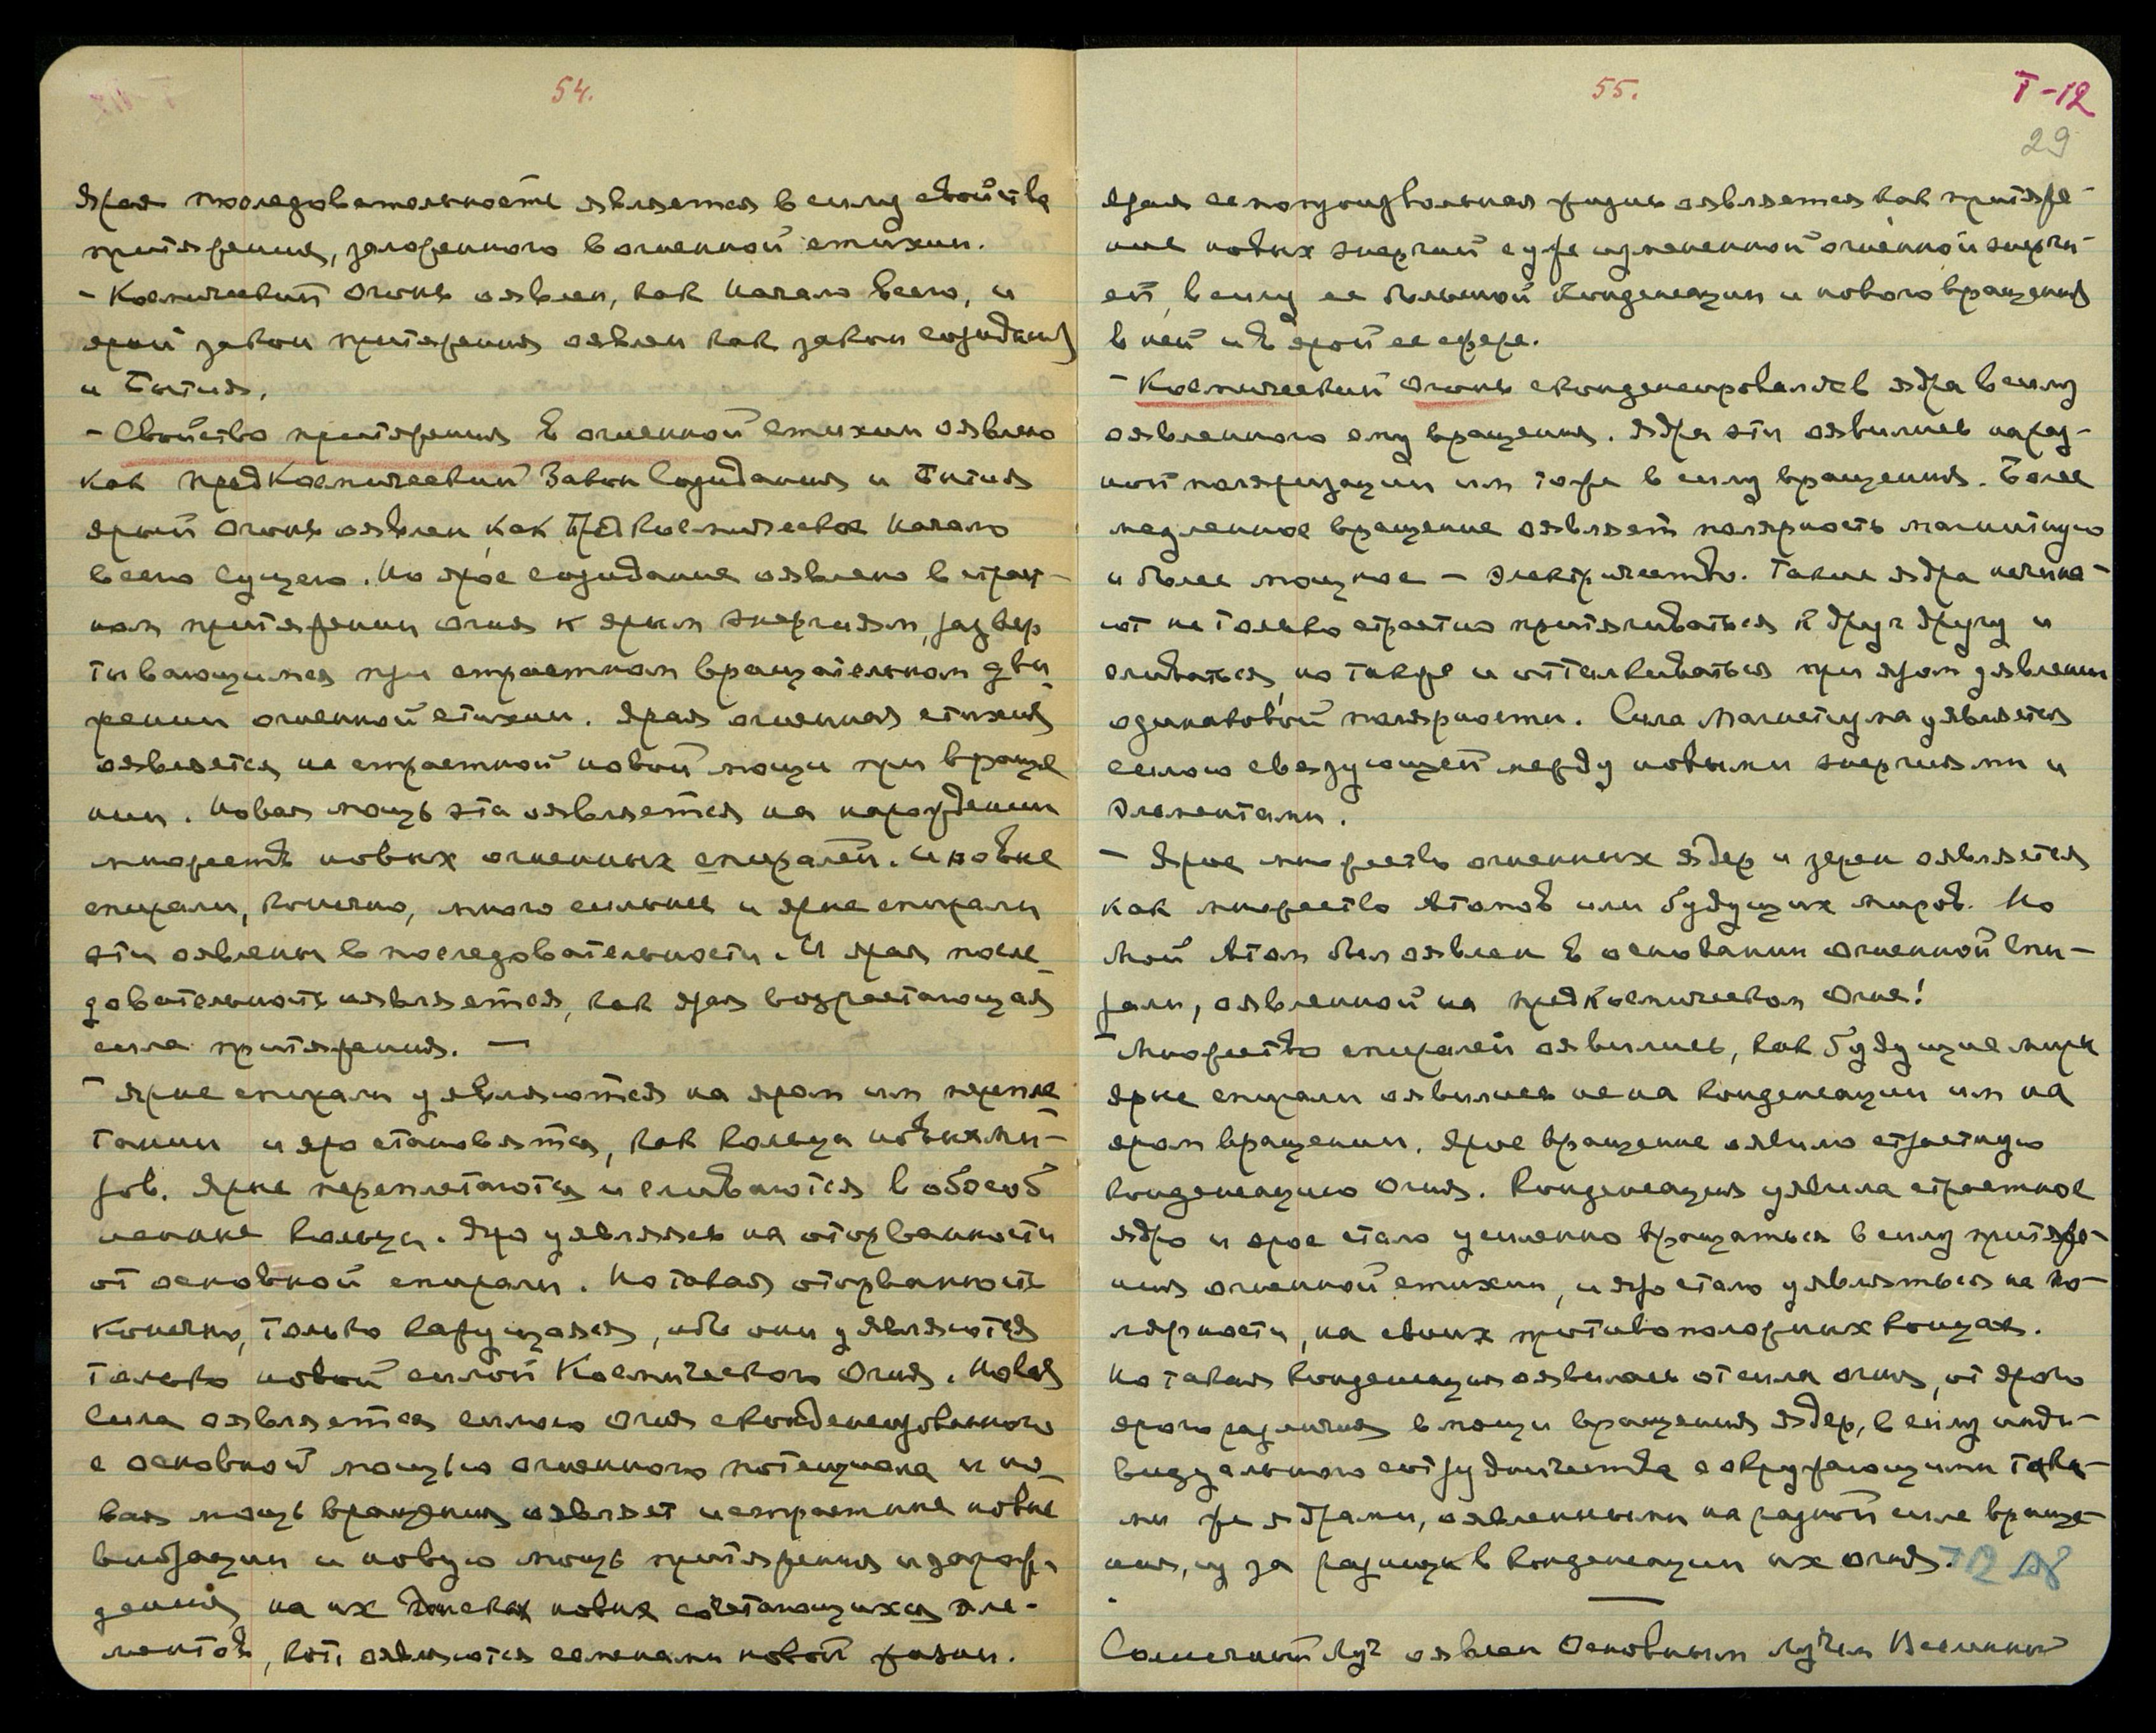 54.
Ярая последовательность является в силу свойства
притяжения, заложенного в огненной стихии.
- Космический Огонь оявлен, как Начало всего, и
ярый закон притяжения оявлен как закон Созидания
и Бытия.
- Свойство притяжения в огненной стихии оявлено
как предКосмический Закон Созидания и Бытия
ярый огонь оявлен как ПредКосмическое Начало
всего Сущего. Но ярое созидание оявлено в страст-
ном притяжении огня к ярым энергиям, развер
тывающимся при страстном вращательном дви-
жении огненной стихии. Ярая огненная стихия
оявляется на страстной новой мощи при враще
нии. Новая мощь эта оявляется на нарождении
множеств новых огненных спиралей. И новые
спирали, конечно, много сильнее и ярые спирали
эти оявлены в последовательности. И ярая после-
довательность оявляется, как ярая возрастающая
сила притяжения. —
- Ярые спирали уявляются на яром им перепле-
тании и яро становятся, как кольца новых ми-
ров. Ярые переплетаются и сливаются в обособ
ленные кольца. Яро уявляясь на оторванности
от основной спирали. Но такая оторванность
конечно, только кажущаяся, ибо они уявляются
только новой силой Космического Огня. Новая
Сила оявляется силою Огня сконденсированного
с основной мощью огненного потенциала и но-
вая мощь вращения оявляет и страстные новые
вибрации и новую мощь притяжения и зарож-
дения на их новых сочетающихся эле-
ментов, кот. оявляются семенами новой жизни.
55.
Т-12
29
ярая самопроизвольная жизнь оявляется как притяже-
ние новых энергий с уже измененной огненной энерги-
ей, в силу ее большой конденсации и нового вращения
в ней и в ярой ее сфере.
- Космический Огонь сконденсировался в ядра в силу
оявленного ему вращения. Ядра эти оявились на раз-
ной поляризации им тоже в силу вращения. Более
медленное вращение оявляет полярность магнитную
и более мощное — электричество. Такие ядра начина-
ют не только страстно притягиваться к друг другу и
сливаться, но также и отталкиваться при яром уявлении
одинаковой полярности. Сила Магнетизма уявляется
силою связующей между новыми энергиями и
элементами.
- Ярое множество огненных ядер и зерен оявляется
как множество Атомов или будущих миров. Но
Мой Атом был оявлен в основании огненной Спи-
рали, оявленной на предКосмическом Огне!
- Множество спиралей оявились, как будущие миры
ярые спирали оявились не на конденсации им на
яром вращении. Ярое вращение оявило страстную
конденсацию Огня. Конденсация уявила страстное
ядро и ярое стало усиленно вращаться в силу притяже-
ния огненной стихии, и яро стало уявляться на по-
лярности, на своих противоположных концах.
Но такая конденсация оявилась от силы огня, от ярого
ярого различия в мощи вращения ядер, в силу инди-
видуального сотрудничества с окружающими таки-
ми же ядрами, оявленными на разной силе враще-
ния, из за разницы в конденсации их огня.
Солнечный Луч оявлен Основным Лучем Вселенной